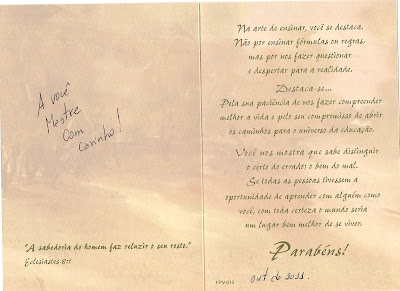 A você
Mestre
Com
Carinho!
"A sabedoria do homem faz reluzir o seu rosto."
Eclesiastes 8:1
Na arte de ensinar, você se destaca.
Não por ensinar fórmulas ou regras,
mas por nos fazer questionar
e despertar para a realidade.
Destaca-se...
Pela sua paciência de nos fazer compreender
melhor a vida e pelo seu compromisso de abrir
os caminhos para o universo da educação.
Você nos mostra que sabe distinguir
o certo do errado; o bem do mal.
Se todas as pessoas tivessem a
oportunidade de aprender com alguém como
você, com toda certeza o mundo seria
um lugar bem melhor de se viver.
Parabéns!
out de 2011.